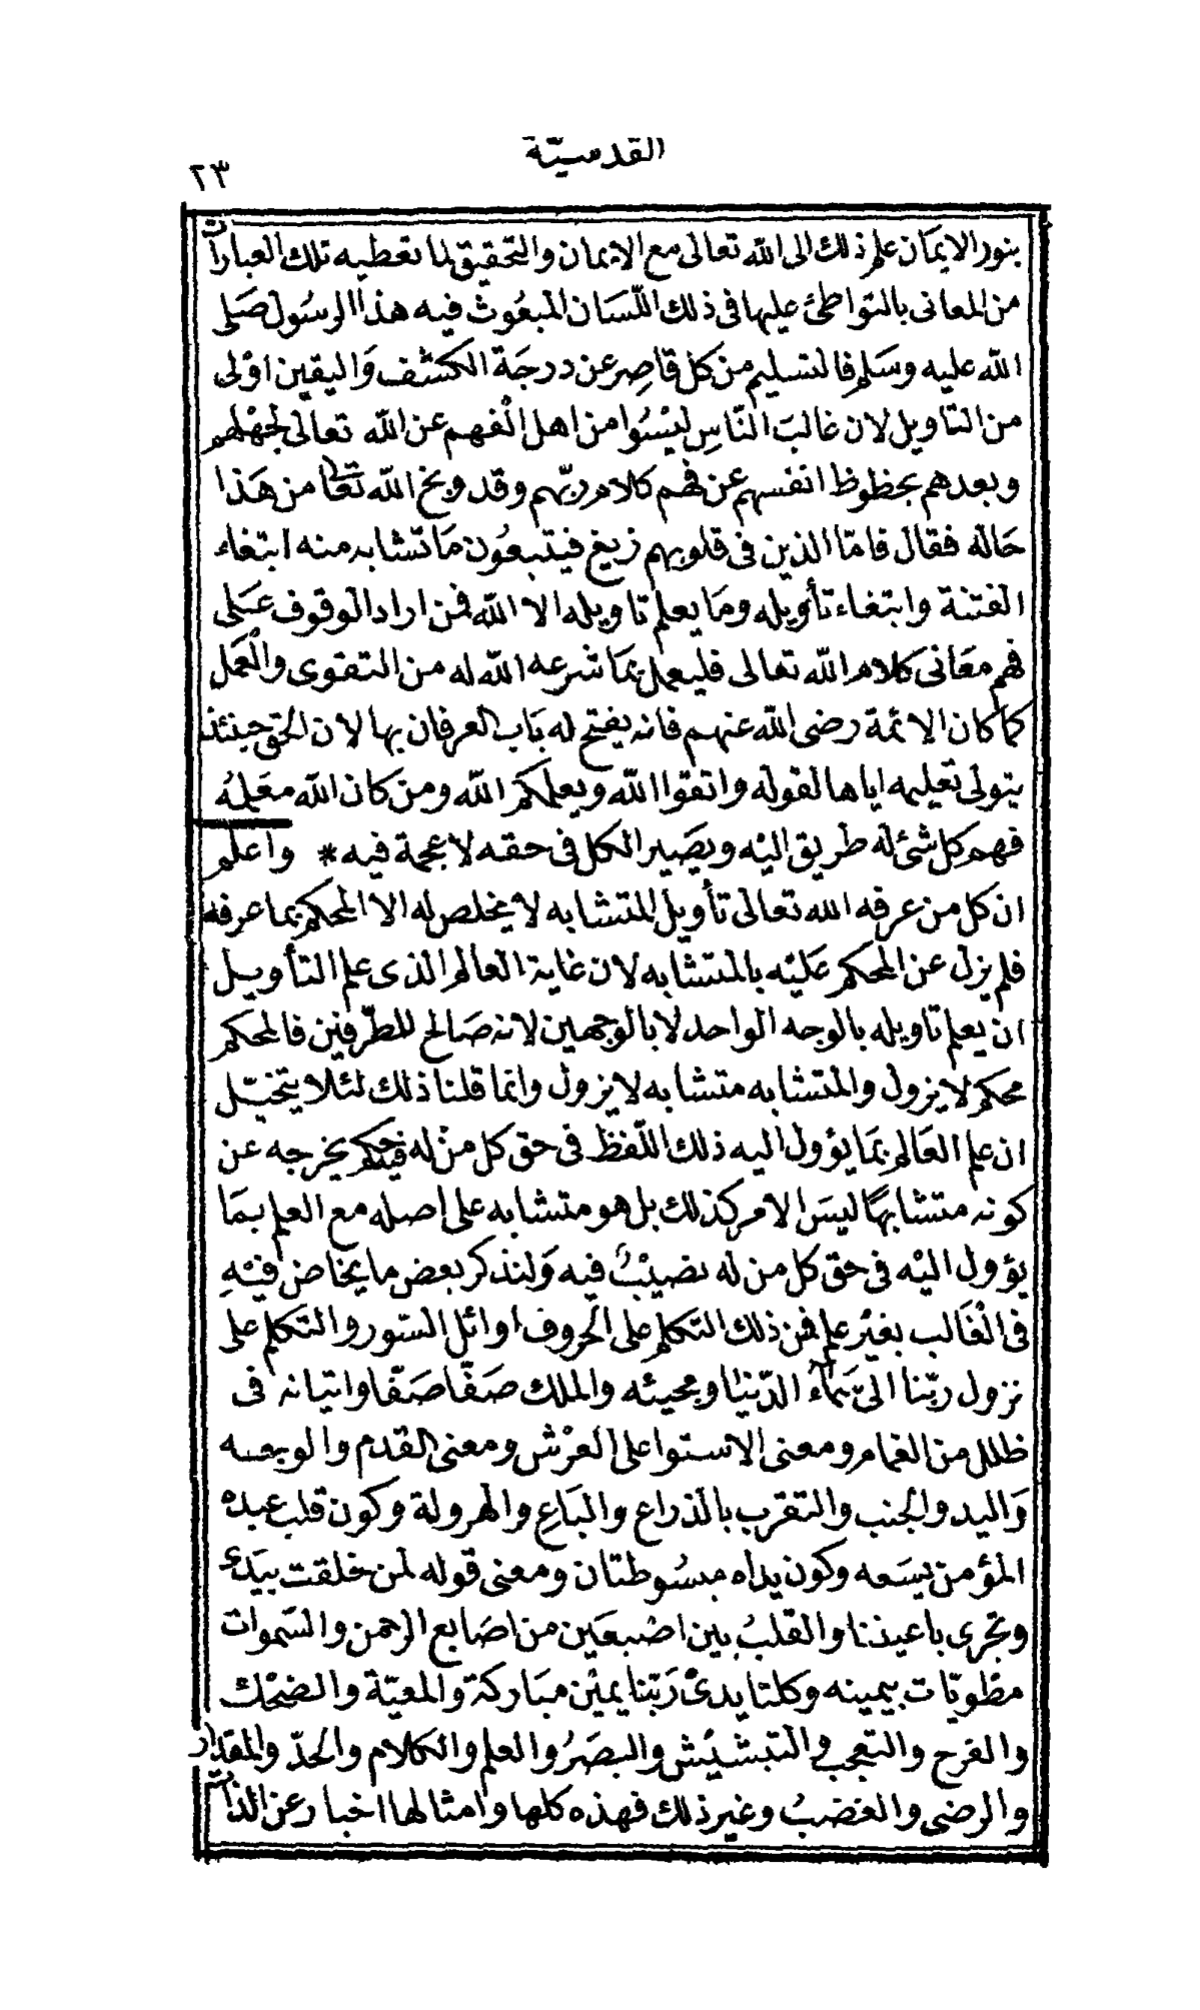 القدسيّة
٢٣
بنور الايمَان علم ذلك الى الله تعالى مع الايمان والتحقيق لما تعطيه تلك العبارات
من المعانى بالتواطئ عليها فى ذلك اللّسَان المبعُوث فيه هذا الرسُول صَلى
الله عليه وسَلم فالتسليم من كل قاصِر عن درجَة الكشف وَاليقين اوْلى
من التاويل لان غالبَ النّاسِ ليْسُوا من اهل الْفهم عن الله تعالى لجهْلهم
وبعدهم بحظوظ انفسهم عن فهم كلام ربّهم وقد وبخ الله تعَا من هَذا
حَاله فقال فامّا الذين فى قلوبهم زيغ فيتبعُون مَا تشابه منه ابتغاء
الفتنة وابتغاء تأويله ومَا يعلم تاويله الا الله فمن اراد الوقوف عَلى
فهم معَانى كلام الله تعالى فليعمل بمَا شرعه الله له من التقوى والْعَمل
كما كان الائمة رضى الله عنهم فانه يفتح له بَاب العرفان بها لان الحق حينئذ
يتولى تعليمه اياها لقوله واتقوا الله ويعلمكم الله ومن كان الله معَلمُه
فهم كل شئ له طريق اليْه ويصَير الكل فى حقه لا عجمة فيه * واعلم
ان كل من عرفه الله تعالى تأويل المتشابه لا يخلص له الا المحكم بما عرفه
فلم يزل عن المحكم عَليْه بالمتشابه لان غاية العالم الذى علم التأويل
ان يعلم تاويله بالوجه الواحد لا بالوجهين لانه صَالح للطّرفين فالمحكم
محكم لا يزول والمتشابه متشابه لا يزول وانما قلنا ذلك لئلا يتخيّل
ان علم العَالم بمَا يؤول اليه ذلك اللّفظ فى حق كل من له فيه حكم يخرجه عن
كونه متشابهًا ليسَ الامر كذلك بل هو متشابه على اصله مع العلم بمَا
يؤول اليْه فى حق كل من له نصيْبٌ فيه وَلنذكر بعض ما يخاض فيْهِ
فى الْغَالب بغيْر علم فمن ذلك التكلم على الحروف اوائل السّور والتكلم على
نزول ربّنا الى سَمآء الدّنيَا ومجيئه والملك صَفًّا صَفًّا واتيانه فى
ظلل من الغمام ومعنى الاستوا على العرْش ومعنى القدم والوجه
وَاليد والجنب والتقرب بالذراع والبَاعِ والهرولة وكون قلب عبده
المؤمن يسَعه وكون يداه مبسُوطتان ومعنى قوله لمن خلقت بيَدي
وتجرى باعيننا والقلبُ بين اصْبعَين من اصَابع الرحمن والسّموات
مطْويّات بيمينه وكلتا يدىْ رَبّنا يميْن مبَاركة والمعيّة والضحْك
والفرح والتعجب والتبشيْش والبصَرُ والعلم والكلام والحدّ والمقدار
والرضى والغضبُ وغير ذلك فهذه كلها وامثالها اخبار عن الذات